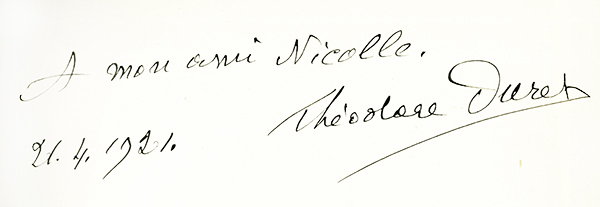 A mon ami Nicolle.
Théodore Duret
21.4.1921.